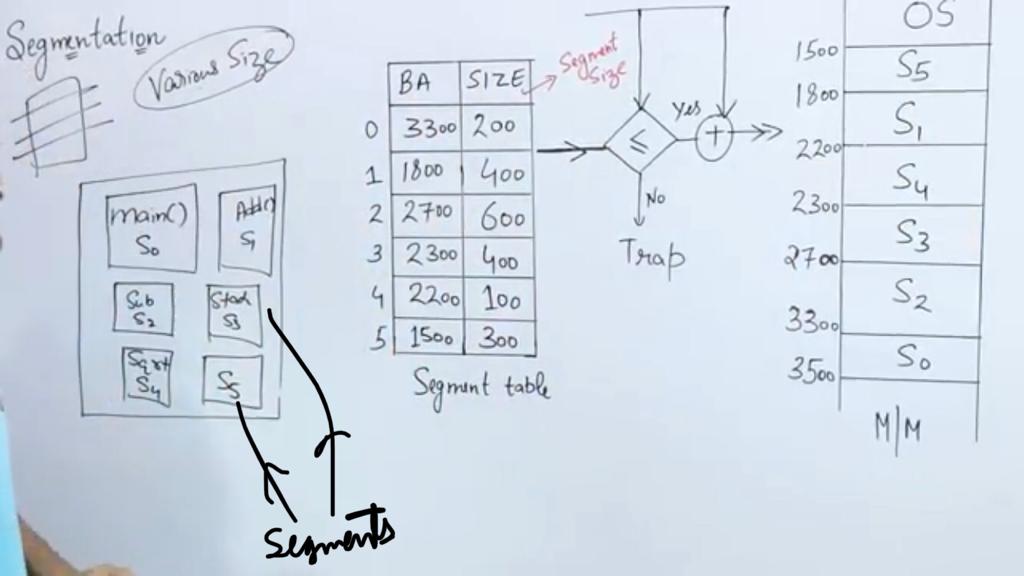 Segmentation
Various Size
main()
S0
Add()
S1
Sub
S2
Stack
S3
Sqrt
S4
S5
Segments
BA SIZE
Segment
Size
0 3300 200
1 1800 400
2 2700 600
3 2300 400
4 2200 100
5 1500 300
Segment table
≤
Yes
+
No
Trap
OS
1500
S5
1800
S1
2200
S4
2300
S3
2700
S2
3300
S0
3500
M/M